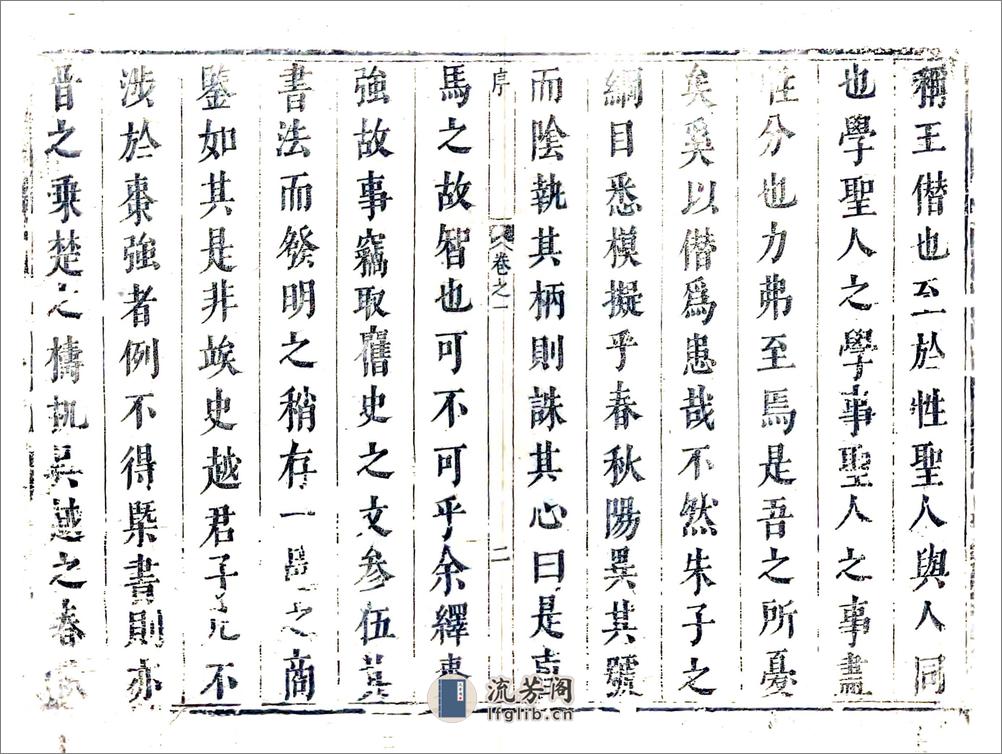 稱王僭也至於性聖人與人同
也學聖人之學事聖人之事盡
性分也力弗至焉是吾之所憂
矣奚以僭爲患哉不然朱子之
綱目悉模擬乎春秋陽異其號
而陰執其柄則誅其心曰是
序
卷之一
二
馬之故智也可不可乎余繹
強故事竊取舊史之文參伍其
書法而發明之稍存一之商
鑒如其是非埃史越君子不
涉於棗強者例不得槩書則亦
晉之乗楚之檮杌吳越之春
流芳阁
lfglib.cn